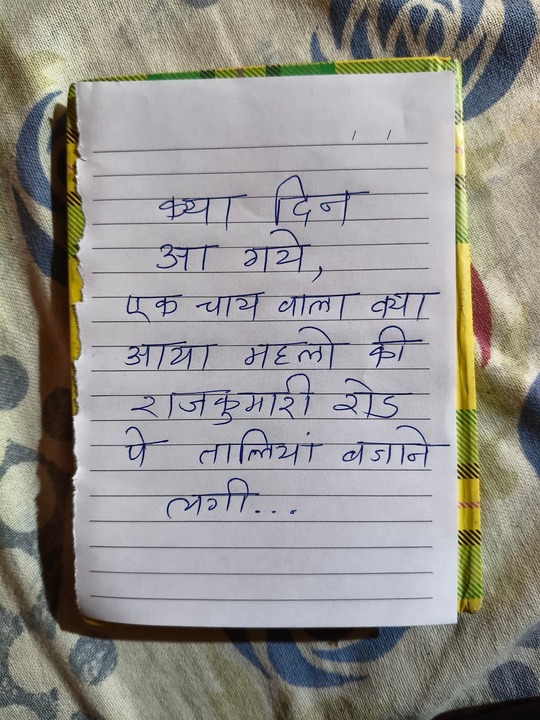 क्या दिन
आ गये,
एक चाय वाला क्या
आया महलो की
राजकुमारी रोड
पे तालियां बजाने
लगी...